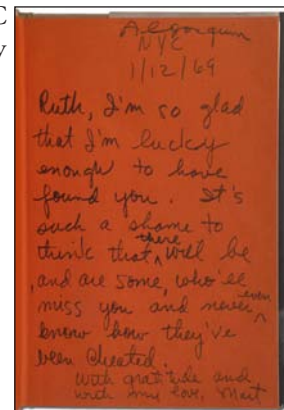 C
y
Algonquin
NYC
1/12/69
Ruth, I'm so glad
that I'm lucky
enough to have
found you. It's
such a shame to
think that there will be
, and are some, who'll
miss you and never even
know how they've
been Cheated.
With gratitude and
with my love, Matt